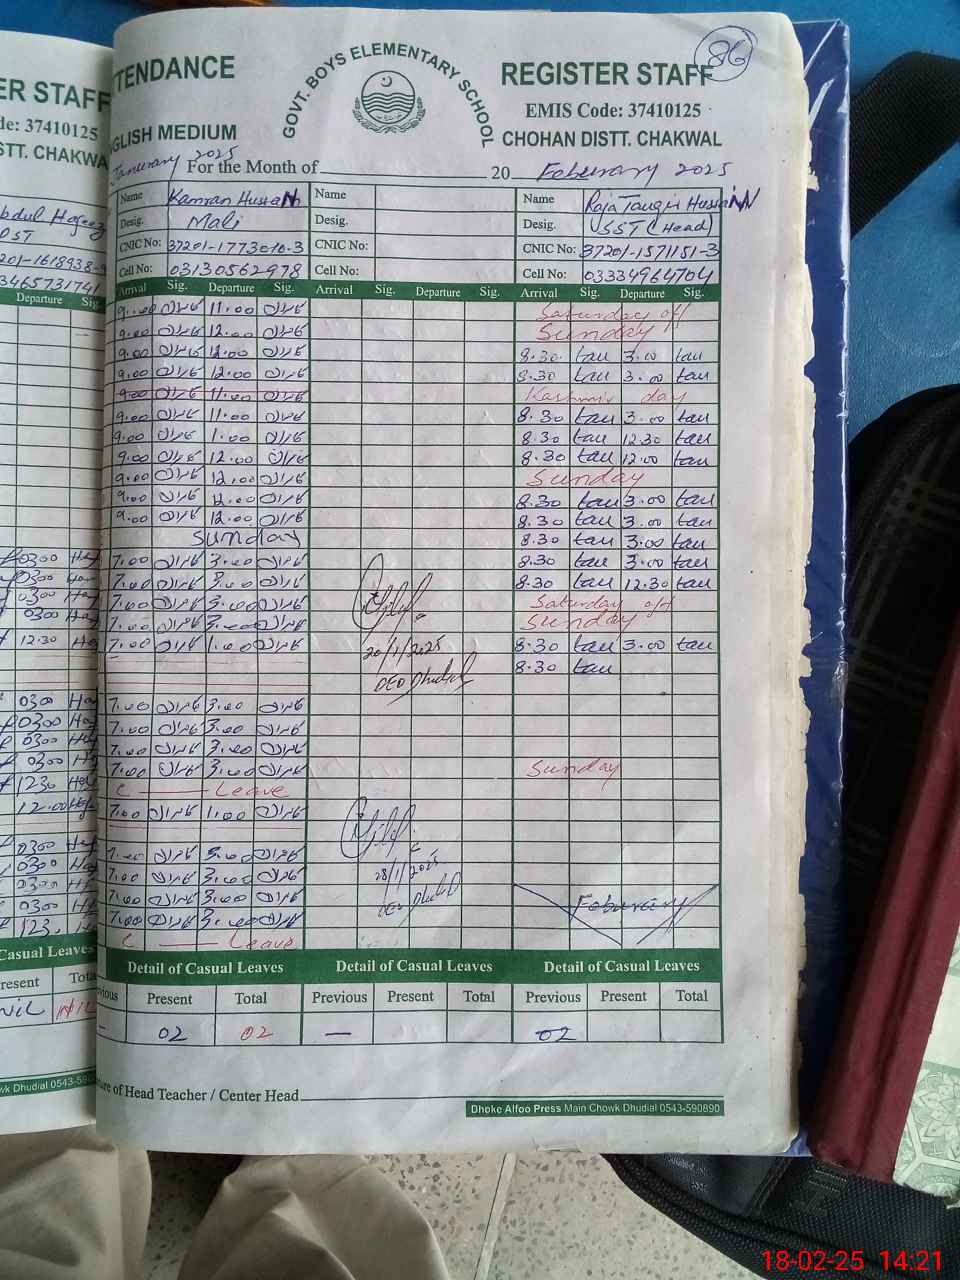 ER STAFF
de: 37410125
STT. CHAKWA
Abdul Hafeez
PST
201-1618938-9
3465731741
Departure Sig.
TTENDANCE
GLISH MEDIUM
GOVT. BOYS ELEMENTARY SCHOOL
86
REGISTER STAFF
EMIS Code: 37410125
CHOHAN DISTT. CHAKWAL
Janurary 2025 For the Month of 20 Feburary 2025
Name Kamran Hussain Name Name Raja Tauqir Hussain
Desig. Mali Desig. Desig. SST (Head)
CNIC No: 37201-1773010-3 CNIC No: CNIC No: 37201-1571151-3
Cell No: 03130562978 Cell No: Cell No: 03334964704
Arrival Sig. Departure Sig. Arrival Sig. Departure Sig. Arrival Sig. Departure Sig.
9.00 11.00 Saturday off
9.00 12.00 Sunday
9.00 12.00 8.30 tau 3.00 tau
9.00 12.00 8.30 tau 3.00 tau
9.00 11.00 Kashmir day
9.00 11.00 8.30 tau 3.00 tau
9.00 1.00 8.30 tau 12.30 tau
9.00 12.00 8.30 tau 12.00 tau
9.00 12.00 Sunday
9.00 12.00 8.30 tau 3.00 tau
9.00 12.00 8.30 tau 3.00 tau
Sunday 8.30 tau 3.00 tau
0300 7.00 3.00 8.30 tau 3.00 tau
0300 7.00 3.00 8.30 tau 12.30 tau
0300 7.00 3.00 Saturday off
0300 7.00 3.00 Sunday
12.30 7.00 1.00 20/1/2025 8.30 tau 3.00 tau
DEO Dhudial 8.30 tau
0300 7.00 3.00
0300 7.00 3.00
0300 7.00 3.00
0300 7.00 3.00 Sunday
1230 C Leave
12.00 7.00 1.00
0300 7.00 3.00
0300 7.00 3.00 28/1/2025
0300 7.00 3.00 DEO Dhudial
7.00 3.00 Feburary
C Leave
Casual Leaves Detail of Casual Leaves Detail of Casual Leaves Detail of Casual Leaves
resent Tota vious Present Total Previous Present Total Previous Present Total
NIL NIL - 02 02 - 02
ure of Head Teacher / Center Head
wk Dhudial 0543-590
Dhoke Alfoo Press Main Chowk Dhudial 0543-590890
18-02-25 14:21